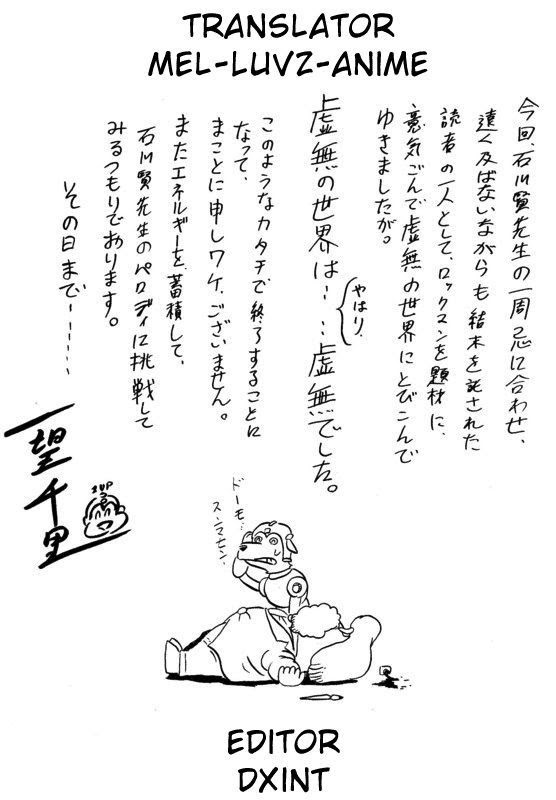 TRANSLATOR
MEL-LUVZ-ANIME
今回、石川賢先生の一周忌に合わせ、
遠く及ばないながらも結末を託された
読者の一人として、ロックスンを題材に、
意気ごんで虚無の世界にとびこんで
ゆきましたが。
虚無の世界は‥‥虚無でした。
やはり、
このようなカタチで終了することに
なって、
まことに申しワケ、ございません。
またエネルギーを蓄積して、
石川賢先生のパロディに挑戦して
みるつもりであります。
その日まで‥‥‥
一望千里
1UP
ドーモ…
スンマセン。
EDITOR
DXINT